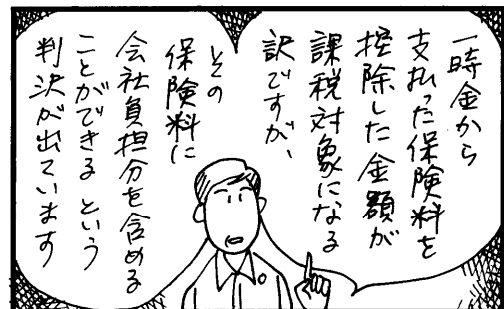 一時金から
支払った保険料を
控除した金額が
課税対象になる
訳ですが、
その
保険料に
会社負担分を含める
ことができる という
判決が出ています